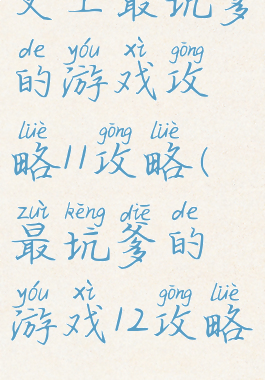 史上最坑爹
de yóu xì gōng
的游戏攻
lüè gōng lüè
略11攻略(
zuì kēng diē de
最坑爹的
yóu xì gōng lüè
游戏12攻略